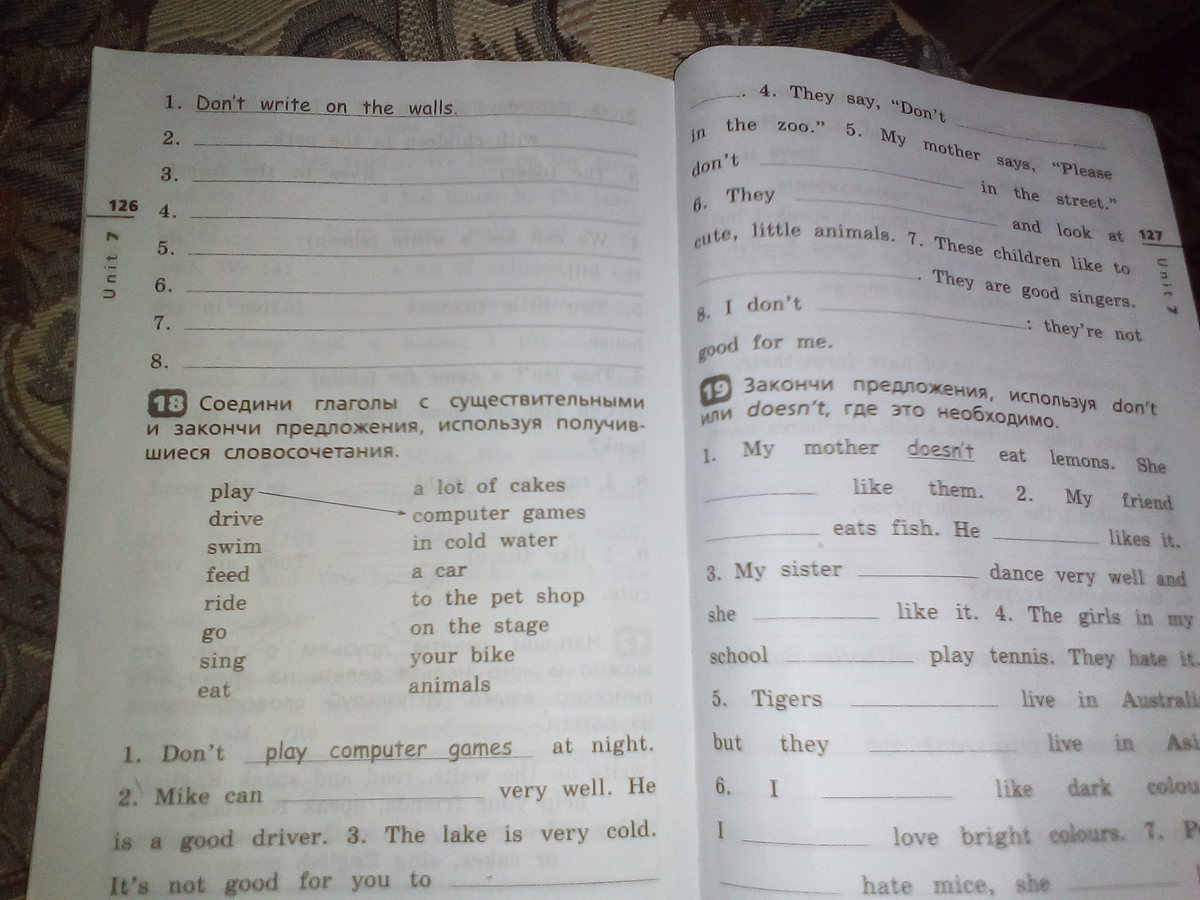 1. Don't write on the walls.
2.
3.
4.
5.
6.
7.
8.
126
Unit 7
18 Соедини глаголы с существительными
и закончи предложения, используя получив-
шиеся словосочетания.
play a lot of cakes
drive computer games
swim in cold water
feed a car
ride to the pet shop
go on the stage
sing your bike
eat animals
1. Don't play computer games at night.
2. Mike can ____ very well. He
is a good driver. 3. The lake is very cold.
It's not good for you to ____
____. 4. They say, “Don't ____
in the zoo.” 5. My mother says, “Please
don't ____ in the street.”
6. They ____ and look at
cute, little animals. 7. These children like to
____. They are good singers.
8. I don't ____: they're not
good for me.
127
Unit 7
19 Закончи предложения, используя don't
или doesn't, где это необходимо.
1. My mother doesn't eat lemons. She
____ like them. 2. My friend
____ eats fish. He ____ likes it.
3. My sister ____ dance very well and
she ____ like it. 4. The girls in my
school ____ play tennis. They hate it.
5. Tigers ____ live in
but they ____ live in
6. I ____ like dark
I ____ love bright colours. 7.
____ hate mice, she ____